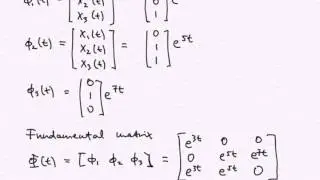 φ₁(t) = [x₁(t) x₂(t) x₃(t)] = [1 0 1] e^{3t}
φ₂(t) = [x₁(t) x₂(t) x₃(t)] = [0 1 1] e^{5t}
φ₃(t) = (0 1 0) e^{7t}
Fundamental matrix
Φ(t) = [φ₁ φ₂ φ₃] = [e^{3t} 0 0; 0 e^{5t} e^{7t}; e^{3t} e^{5t} 0]